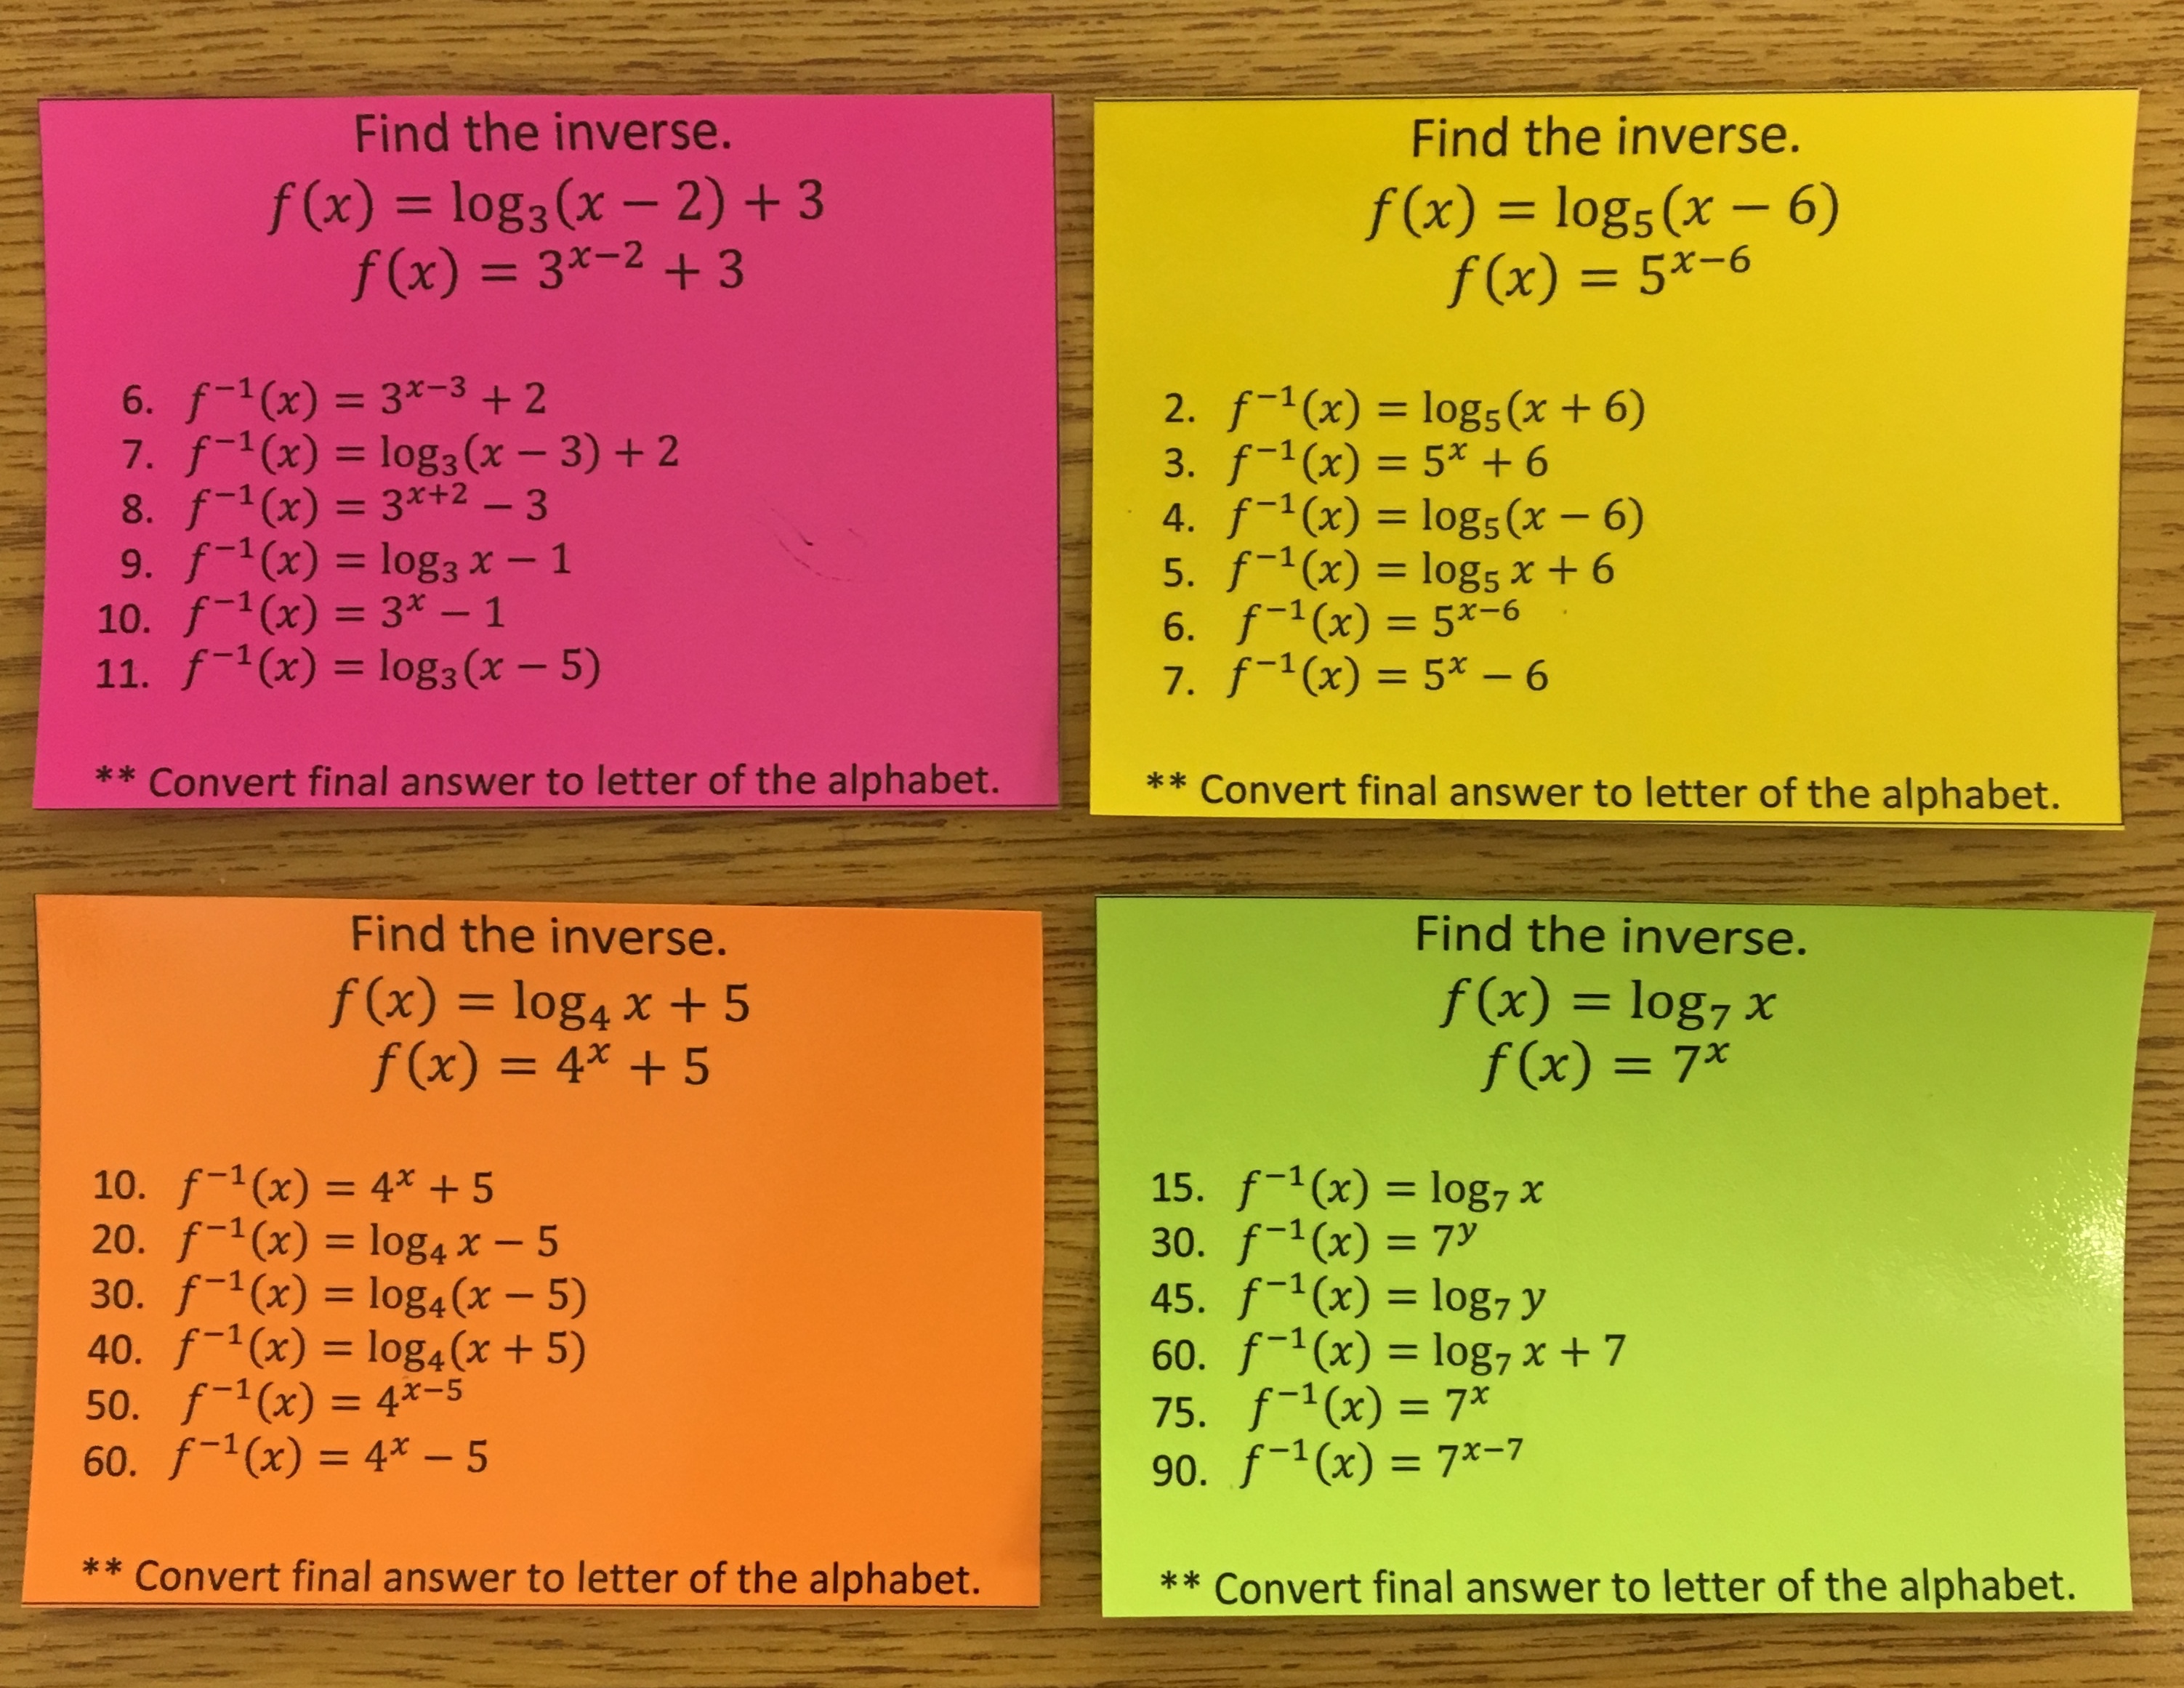 Find the inverse.
f(x) = log₃(x − 2) + 3
f(x) = 3ˣ⁻² + 3
6. f⁻¹(x) = 3ˣ⁻³ + 2
7. f⁻¹(x) = log₃(x − 3) + 2
8. f⁻¹(x) = 3ˣ⁺² − 3
9. f⁻¹(x) = log₃ x − 1
10. f⁻¹(x) = 3ˣ − 1
11. f⁻¹(x) = log₃(x − 5)
** Convert final answer to letter of the alphabet.
Find the inverse.
f(x) = log₅(x − 6)
f(x) = 5ˣ⁻⁶
2. f⁻¹(x) = log₅(x + 6)
3. f⁻¹(x) = 5ˣ + 6
4. f⁻¹(x) = log₅(x − 6)
5. f⁻¹(x) = log₅ x + 6
6. f⁻¹(x) = 5ˣ⁻⁶
7. f⁻¹(x) = 5ˣ − 6
** Convert final answer to letter of the alphabet.
Find the inverse.
f(x) = log₄ x + 5
f(x) = 4ˣ + 5
10. f⁻¹(x) = 4ˣ + 5
20. f⁻¹(x) = log₄ x − 5
30. f⁻¹(x) = log₄(x − 5)
40. f⁻¹(x) = log₄(x + 5)
50. f⁻¹(x) = 4ˣ⁻⁵
60. f⁻¹(x) = 4ˣ − 5
** Convert final answer to letter of the alphabet.
Find the inverse.
f(x) = log₇ x
f(x) = 7ˣ
15. f⁻¹(x) = log₇ x
30. f⁻¹(x) = 7ʸ
45. f⁻¹(x) = log₇ y
60. f⁻¹(x) = log₇ x + 7
75. f⁻¹(x) = 7ˣ
90. f⁻¹(x) = 7ˣ⁻⁷
** Convert final answer to letter of the alphabet.